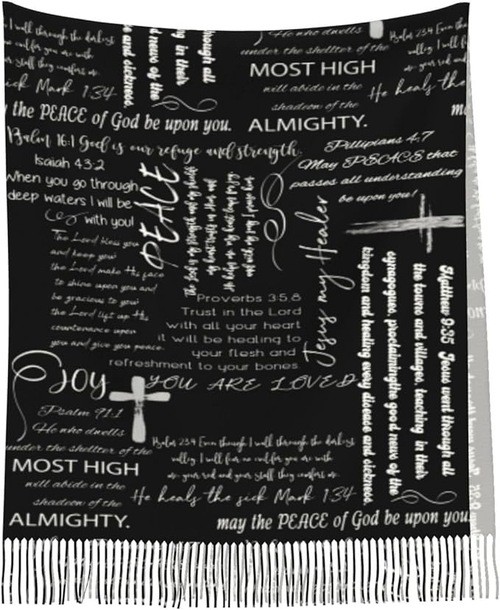 I walk through the darkest
no evil for you are with
staff they comfort me.
sick Mark 1:34
the PEACE of God be upon you.
Psalm 16:1 God is our refuge and strength.
Isaiah 43:2
When you go through
deep waters I will be
with you!
The Lord bless you
and keep you
the Lord make His face
to shine upon you and
be gracious to you
the Lord lift up His
countenance upon
you and give you peace.
PEACE
Who he dwells
under the shellter of the
MOST HIGH
will abide in the
shadeow of the
ALMIGHTY.
Psalm 23:4
He heals the
Phillupians 4:7
May PEACE that
passes all understanding
be upon you!
Jesus my Healer
Proverbs 3:5-8
Trust in the Lord
with all your heart
it will be healing to
your flesh and
refreshment to your bones.
Matthew 9:35 Jesus went through all
the towns and villages, teaching in their
synagogue, proclaimingthe good news of the
kingdom and healing every disease and sickness
JOY
YOU ARE LOVED
Psalm 91:1
He who dwells
under the shellter of the
MOST HIGH
will abide in the
shadeow of the
ALMIGHTY.
Psalm 23:4 Even though I walk through the darkest
valley I will fear no evil for you are with
me your rod and your staff they comfort me.
He heals the sick Mark 1:34
may the PEACE of God be upon you.